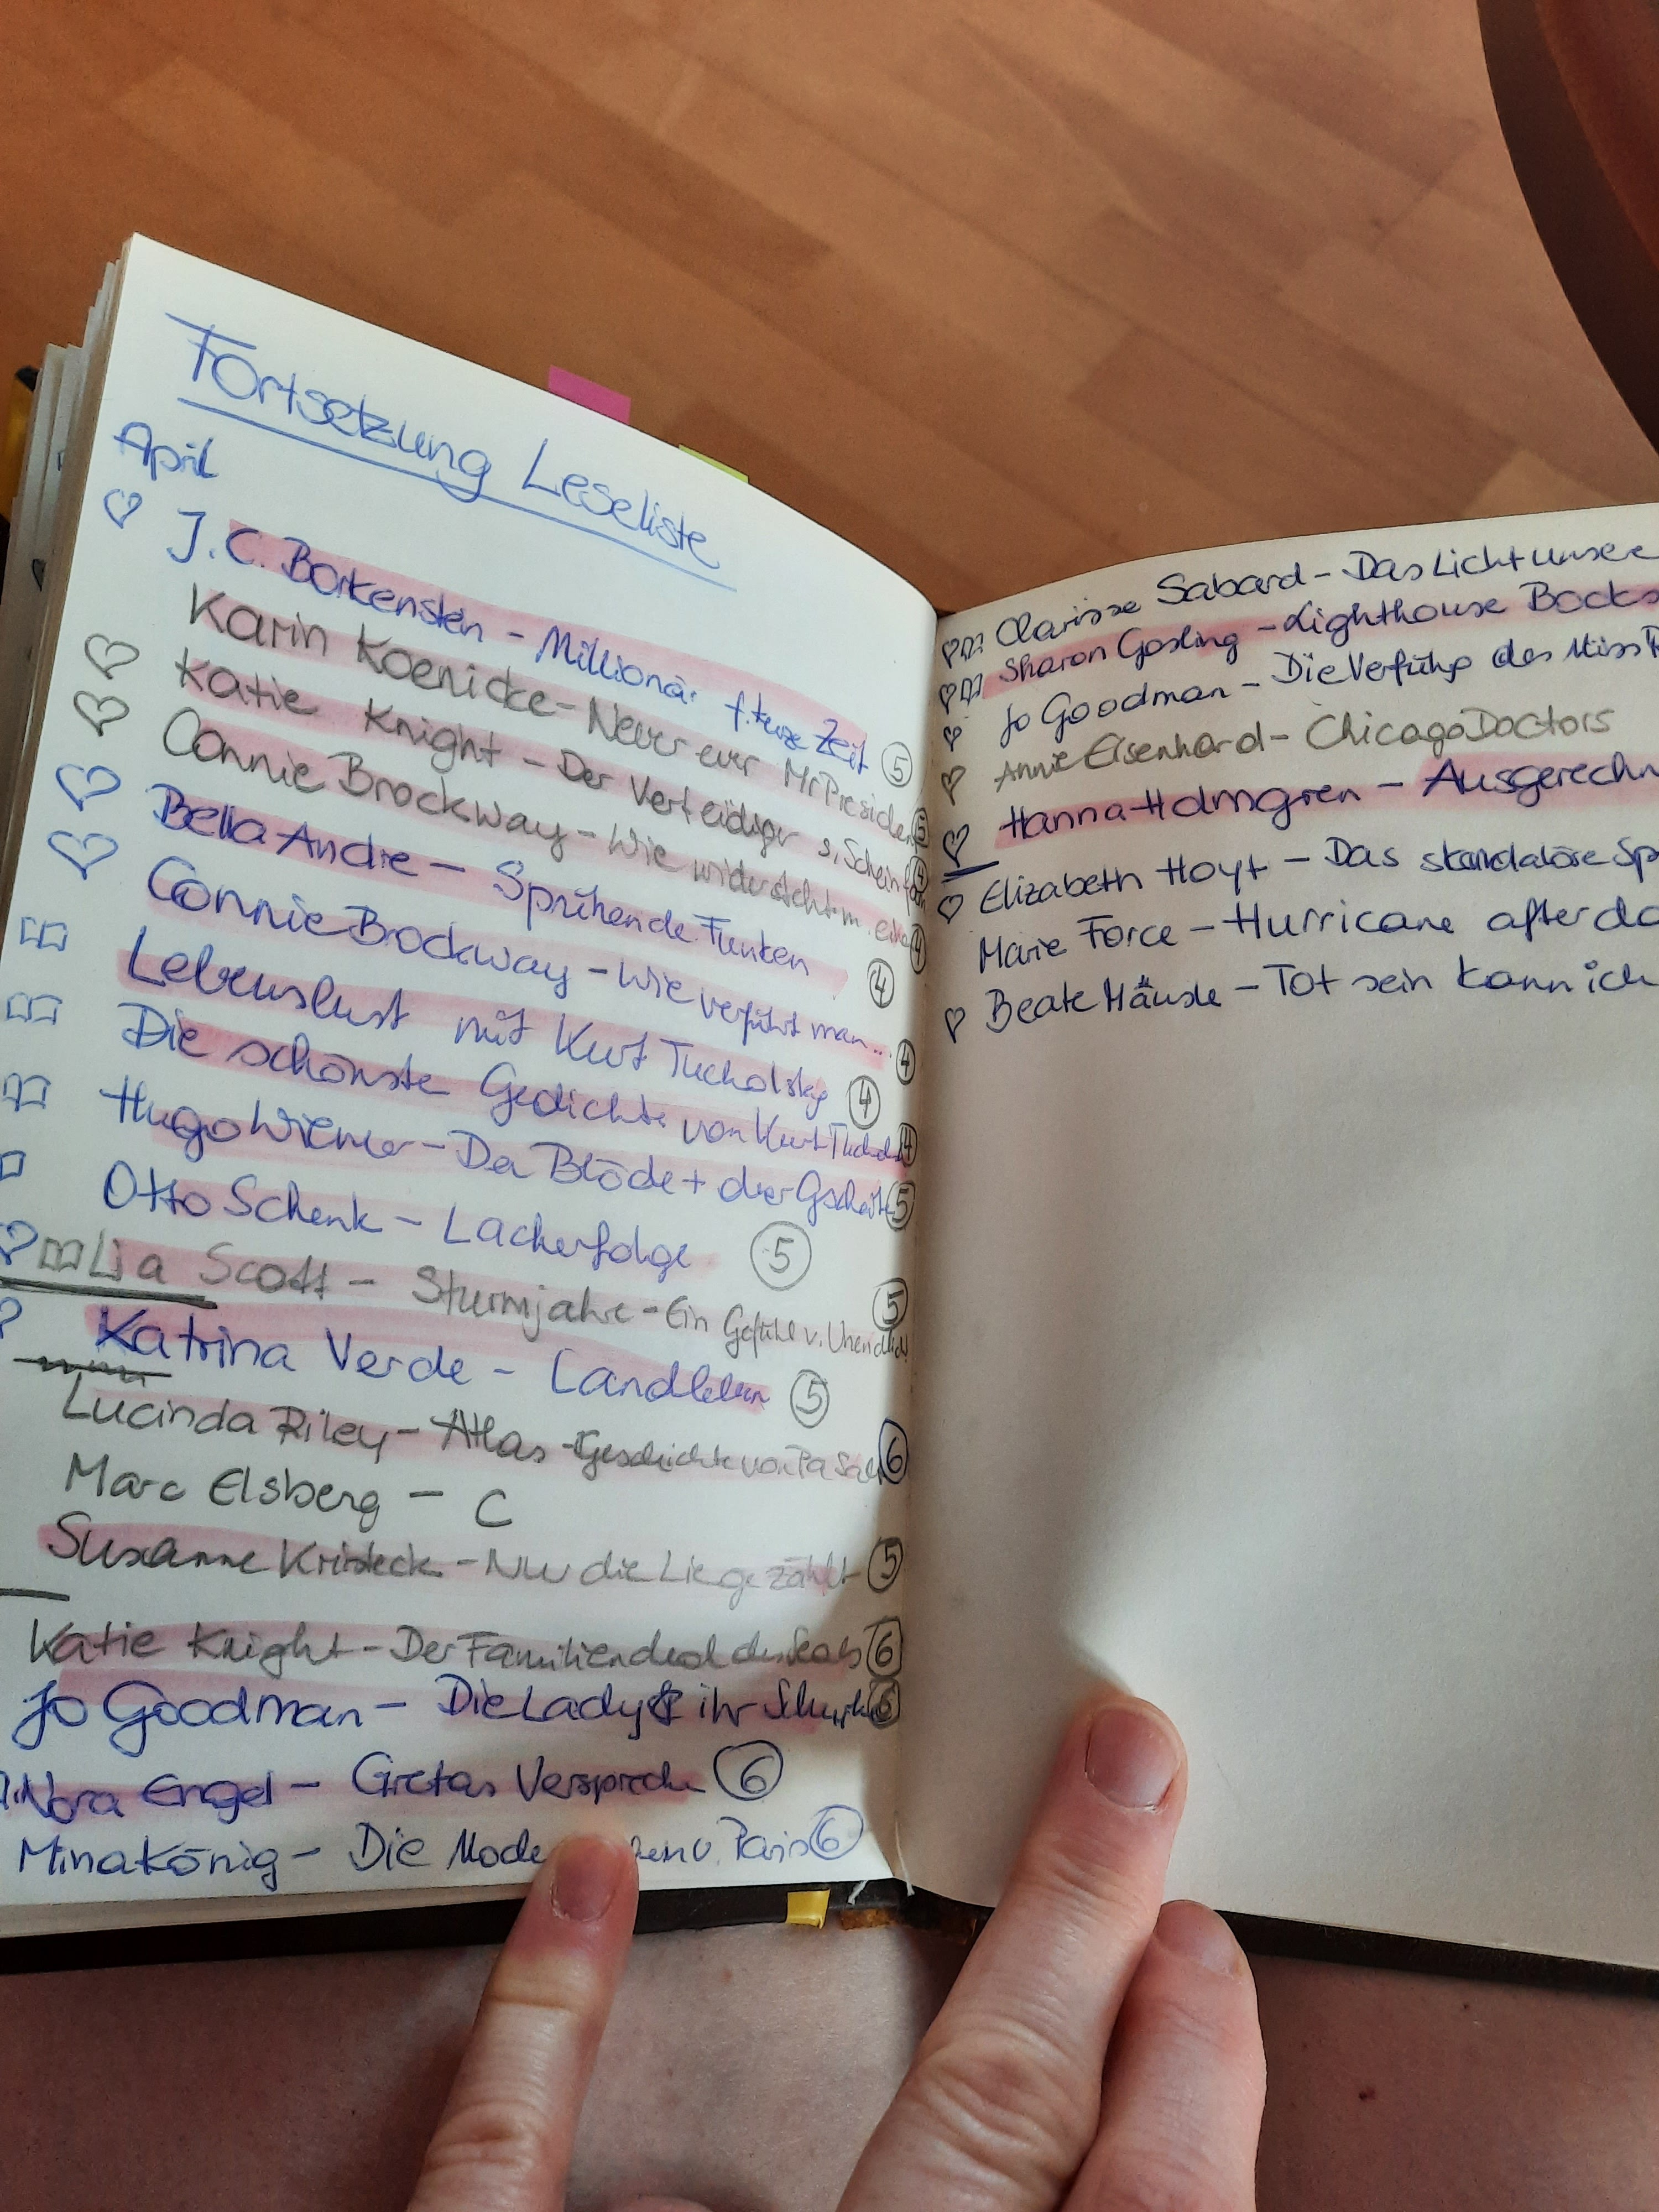 Fortsetzung Leseliste
April
J.C. Borkensten - Millionär f. kurze Zeit 5
Karin Koenicke - Never ever Mr Presiden
Katie Knight - Der Verteidiger s. Schein 4
Connie Brockway - Wie widersteht m. ein 4
Bella Andre - Sprühende Funken 4
Connie Brockway - Wie verführt man... 4
Lebenslust mit Kurt Tucholsky 4
Die schönste Gedichte von Kurt Tuchol 4
Hugo Wiener - Der Blöde + der Gscheite 5
Otto Schenk - Lacherfolge 5
Lia Scott - Sturmjahre - Ein Gefühl v. Unendlich 5
Katrina Verde - Landleben 5
Lucinda Riley - Atlas - Geschichte von Pa Salt 6
Marc Elsberg - C
Susanne Kristeck - Nur die Liege zählt 5
Katie Knight - Der Familiendeal des Seals 6
Jo Goodman - Die Lady & ihr Schurke 6
Nora Engel - Gretas Versprechen 6
Mina König - Die Mode v. Paris 6
Clarisse Sabard - Das Licht unsere
Sharon Gosling - Lighthouse Books
Jo Goodman - Die Verführg des Miss R
Annie Eisenhard - Chicago Doctors
Hanna Holmgren - Ausgerechn
Elizabeth Hoyt - Das skandalöse Sp
Marie Force - Hurricane after da
Beate Mäusle - Tot sein kann ich